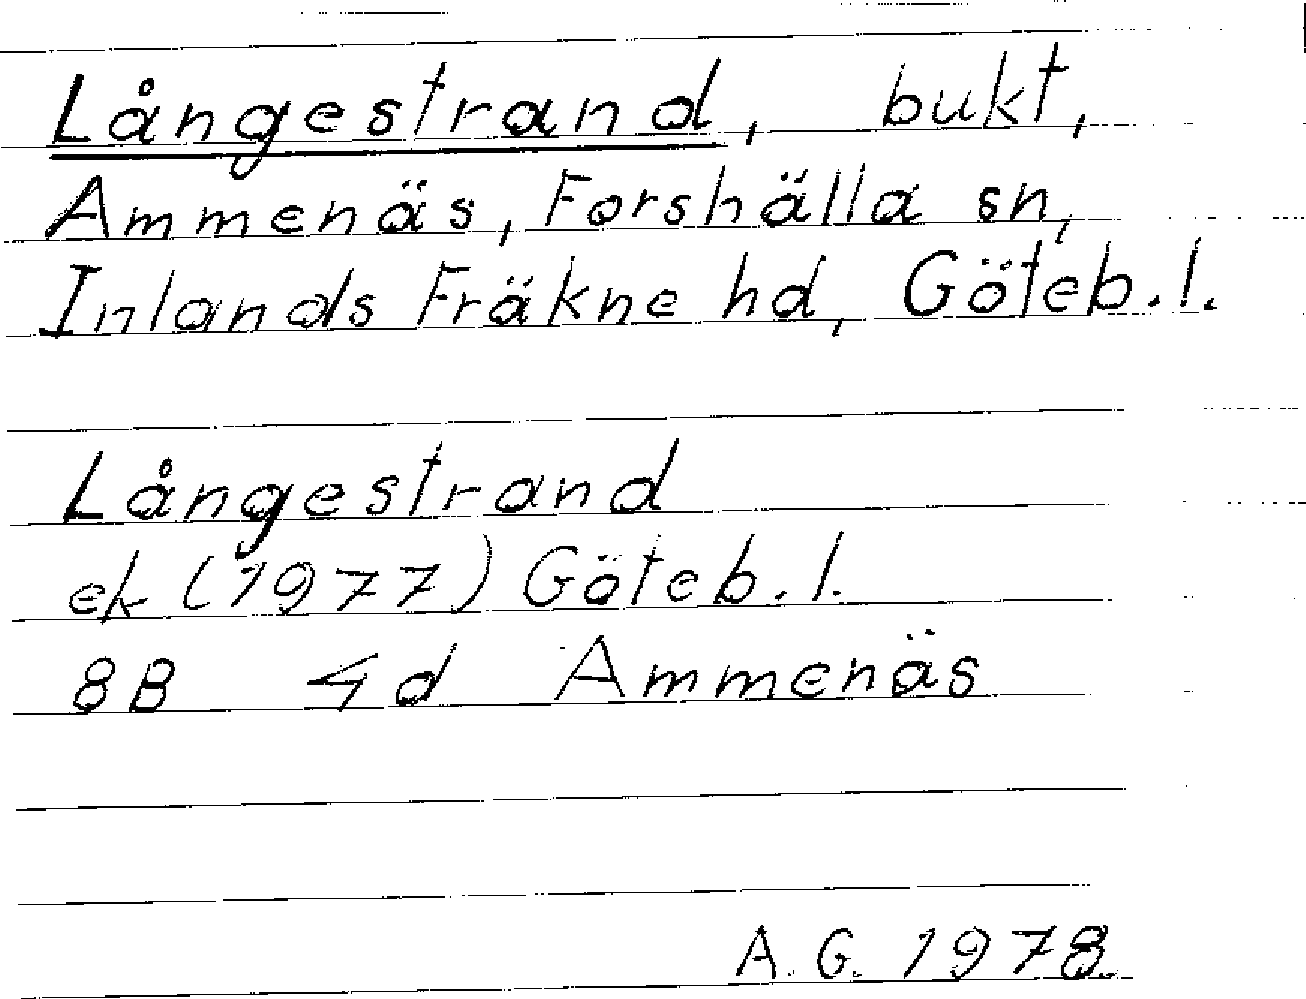 Långestrand, bukt,
Ammenäs, Forshälla sn,
Inlands Fräkne hd, Göteb.l.
Långestrand
ek (1977) Göteb.l.
8B 4d Ammenäs
A.G. 1978.